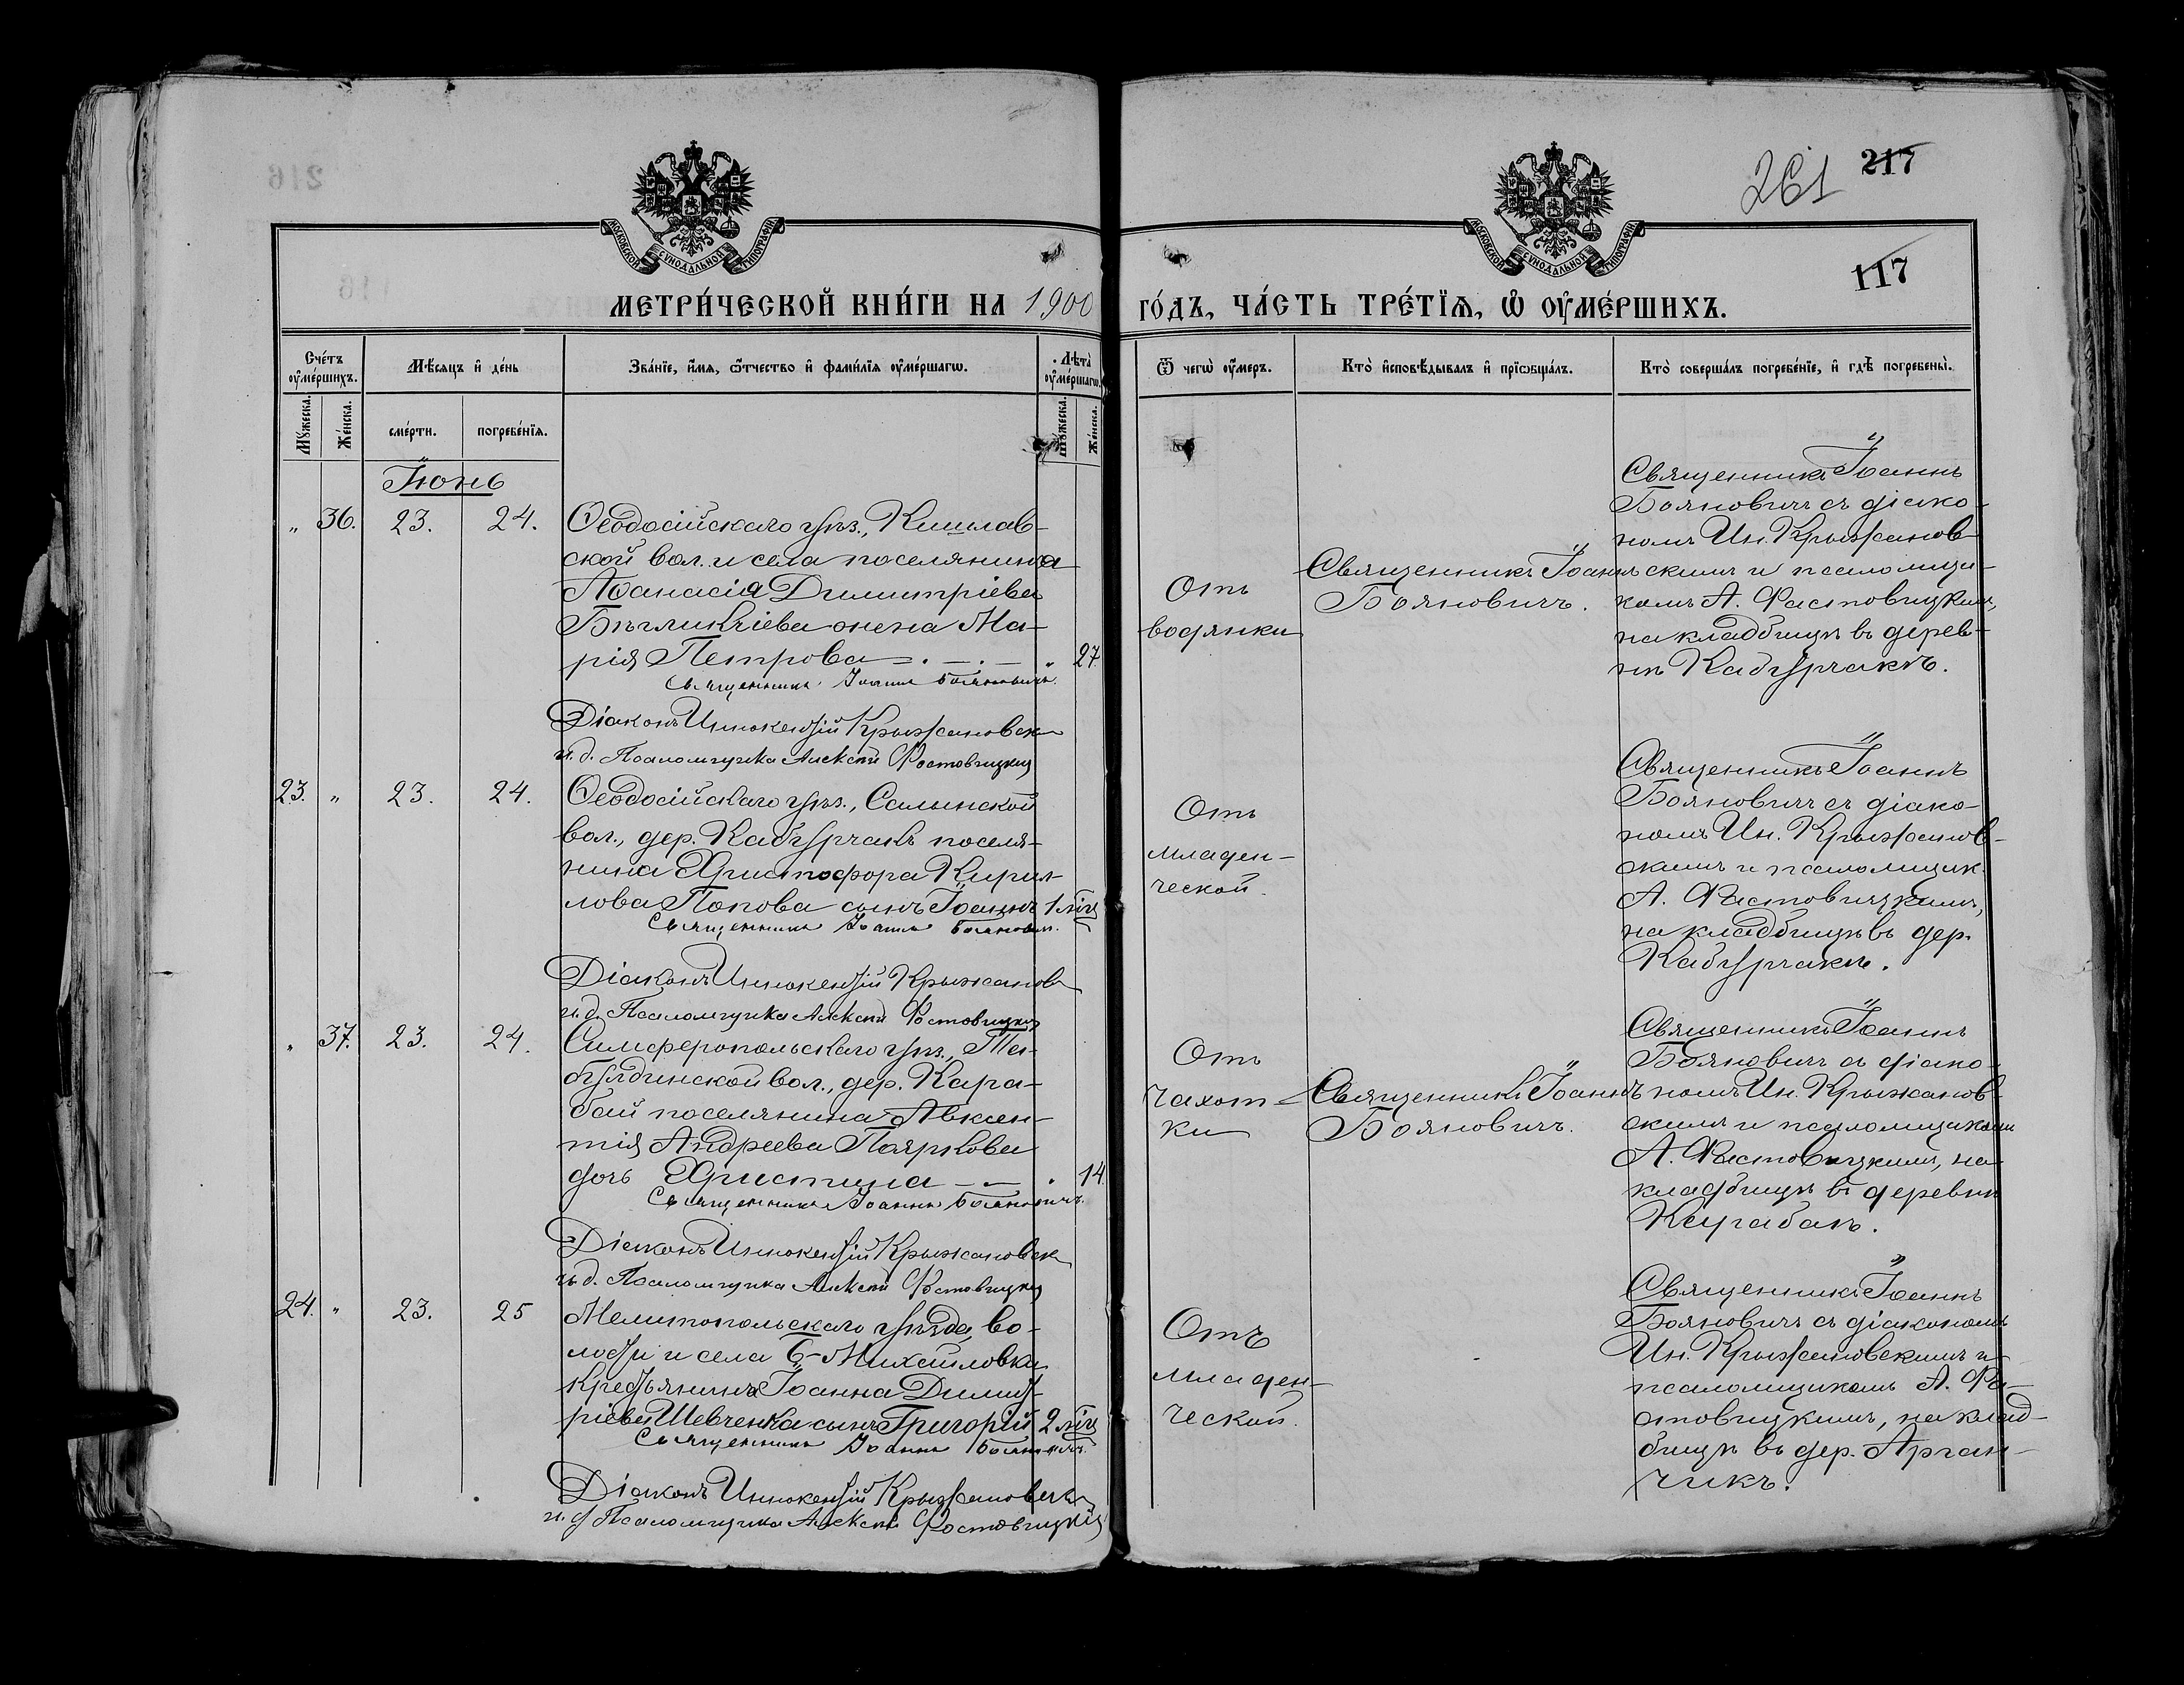 261 217
117
МОСКОВСКОЙ СѴНОДАЛЬНОЙ ТИПОГРАФІИ
МОСКОВСКОЙ СѴНОДАЛЬНОЙ ТИПОГРАФІИ
МЕТРИ́ЧЕСКОЙ КНИ́ГИ НА 1900
ГО́ДЪ, ЧА́СТЬ ТРЕ́ТЇѦ, Ѡ҆ ОУ҆МЕ́РШИХЪ.
Сче́тъ оу҆ме́ршихъ.
Мѣ́сяцъ и҆ де́нь
Зва́нїе, и҆́мѧ, ѻ҆́тчество и҆ фами́лїѧ оу҆ме́ршагѡ.
Лѣ́та оу҆ме́ршагѡ.
Ѿ чегѡ̀ оу҆́меръ.
Кто̀ и҆сповѣ́дывалъ и҆ прїѡбща́лъ.
Кто̀ соверша́лъ погребе́нїе, и҆ гдѣ̀ погребены̀.
Мꙋ́жеска.
Же́нска.
сме́рти.
погребе́нїѧ.
Мꙋ́жеска.
Же́нска.
Іюнь
„ 36. 23. 24.
Ѳеодосійскаго уѣз., Кишлав-
ской вол. и села поселянина
Аѳанасія Димитріева
Бѣгликчіева жена Ма-
рія Петрова „ 27
Священникъ Іоаннъ Бояновичъ.
Діаконъ Иннокентій Крыжановск
и. д. Псаломщика Алексѣй Фастовицкій
Отъ
водянки
Священникъ Іоаннъ
Бояновичъ.
Священникъ Іоаннъ
Бояновичъ съ діако-
номъ Ин. Крыжанов-
скимъ и псаломщи-
комъ А. Фастовицким,
на кладбищѣ въ дерев-
нѣ Кабурчакъ.
23. „ 23. 24.
Ѳеодосійскаго уѣз., Салынской
вол., дер. Кабурчакъ поселя-
нина Христофора Кирил-
лова Попова сынъ Іоаннъ 1 мѣц
Священникъ Іоаннъ Боянович.
Діаконъ Иннокентій Крыжанов
и. д. Псаломщика Алексѣй Фастовицкій
Отъ
младен-
ческой.
Священникъ Іоаннъ
Бояновичъ съ діако-
номъ Ин. Крыжанов-
скимъ и псаломщик.
А. Фастовицкимъ,
на кладбищѣ въ дер.
Кабурчакъ.
„ 37. 23. 24.
Симферопольскаго уѣз., Та-
булдинской вол., дер. Кара-
бай поселянина Авксен-
тія Андреева Пояркова
дочь Христина „ 14
Священникъ Іоаннъ Бояновичъ.
Діаконъ Иннокентій Крыжановск
и. д. Псаломщика Алексѣй Фастовицкій
Отъ
чахот-
ки
Священникъ Іоаннъ
Бояновичъ.
Священникъ Іоаннъ
Бояновичъ съ діако-
номъ Ин. Крыжанов-
скимъ и псаломщиком
А. Фастовицкимъ, на
кладбищѣ въ деревнѣ
24. „ 23. 25
Мелитопольскаго уѣзда, во-
лости и села Б-Михайловки
крестьянина Іоанна Димит-
ріева Шевченка сынъ Григорій 2 мѣц
Священникъ Іоаннъ Бояновичъ.
Діаконъ Иннокентій Крыжановск
и. д. Псаломщика Алексѣй Фастовицкій
Отъ
младен-
ческой.
Священникъ Іоаннъ
Бояновичъ съ діакономъ
Ин. Крыжановскимъ и
псаломщикомъ А. Фа-
стовицкимъ, на клад-
бищѣ въ дер. Арган-
чикъ.